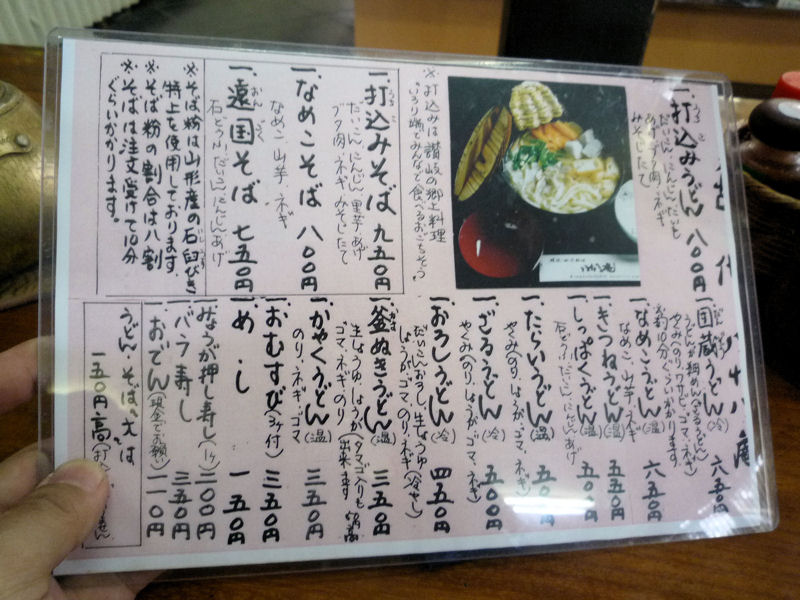 一、打込みうどん 八〇〇円
だいこん にんじん だいも
あげ ブタ肉 ネギ
みそじたて
※打込みは讃岐の郷土料理
“いろり端でみんなで食べるおごっそう”
一、打込みそば 九五〇円
だいこん にんじん 里芋 あげ
ブタ肉 ネギ みそじたて
一、なめこそば 八〇〇円
なめこ 山芋 ネギ
一、遠国そば 七五〇円
石どうふ だいこん にんじん あげ
※そば粉は山形産の石臼びき
特上を使用しております。
※そば粉の割合は八割
※そばは注文受けて10分
ぐらいかかります。
一、国蔵うどん(冷) 六五〇円
うどんが細めん(ざるうどん)
やくみ(のり、ワサビ、ゴマ、ネギ)
※約10分ぐらいかかります
一、なめこうどん(温) 六五〇円
なめこ、山芋、ネギ
一、きつねうどん(温) 五五〇円
一、しっぽくうどん(温) 五〇〇円
石どうふ だいこん にんじん あげ
一、たらいうどん(温) 五〇〇円
やくみ(のり、しょうが、ゴマ、ネギ)
一、ざるうどん(冷) 五〇〇円
やくみ(のり、しょうが、ゴマ、ネギ)
一、おろしうどん(冷) 四五〇円
だいこんおろし、生じょうゆ(冷やし)
しょうが、ゴマ、のり、ネギ
一、釜ぬきうどん(温) 三五〇円
生じょうゆ、しょうが(タマゴ入りも50円高
ゴマ、ネギ、のり 出来ます
一、かやくうどん(温) 三五〇円
のり、ネギ、ゴマ
一、おむすび(3ヶ付) 三五〇円
一、めし 一五〇円
一、みょうが押し寿し(1ヶ) 二〇〇円
一、バラ寿し 三五〇円
一、おでん(現金でお願い) 一一〇円
うどん・そば。大は
一五〇円高